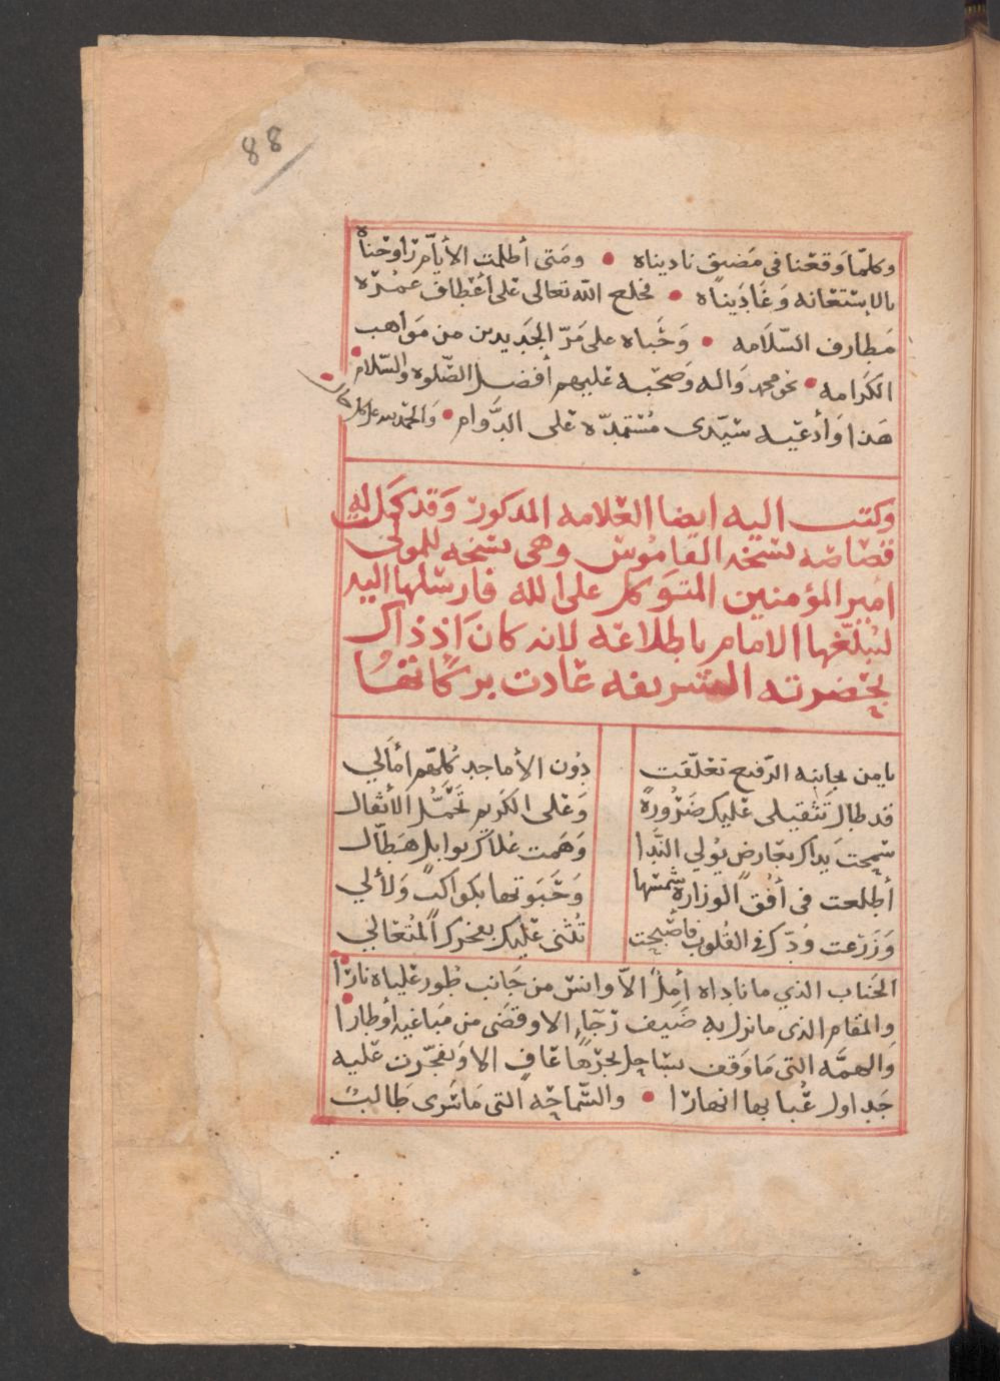 88
وكلّما وَقعْنا في مَضيق ناديناه • ومَتى أظلمت الأيّام زاوحْناه
بالاسْتغانه وَغَادَيناه • فخلع الله تعالى على أعْطاف عمُرَه
مَطارف السّلامه • وَحَباه على مَرّ الجَديدين من مَواهب
الكرَامه • نحو محمد وَاله وَصحْبه عَليهم أفضل الصّلوه والسّلام •
هَذا وَأدعْيه سَيّدى مُسْتمدّه عَلى الدَّوام • وَالحمد لله على كل حال
وكتب اليه ايضا العْلامه المذكور وَقد كمل له
قصَاصَه نسْخة القامُوسْ وهى نسْخه للمولى
امير المؤمنين المتوَكل على الله فارسْلها اليه
ليُبلّغها الامام باطلاعْه لانه كانَ اذ ذاك
بحَضرته الشريفه عَادت بركَاتهَا
يا من بجانبه الرّفيع تعَلّقت دوُن الأماجد كُلّهم امَالي
قد طال تثقيلى عَليك ضَرُورةً وَعْلى الكَريم تَحَمُّل الأثقال
سْمِحت يَداك بعَارض يوُلي النّدَا وَهَمت عُلاك بوابل هَطّال
أطلعت فى أفُق الوزارة شمسْها وَحَبَوتها بكواكب وَلألي
وَزَرعت وُدّك في القلوب فأصْبحت تُثنى عَليك بفخرك المُتعَالي
الجَناب الذي ما ناداه أمِلٌ الاّ وانسْ من جَانب طُور عَلياه نارًا •
والمقام الذى ما نزل به ضَيف رَجَاءٍ الا وقضَى من مَباغيه أوطارا •
وَالهمَّه التى مَا وَقف بسَاحِل بحرهَا عَافٍ الا وَتفجّرت عَليه
جَداول عُبابها انهارًا • والسّماحَه التى مَا سَرى طَالبٌ